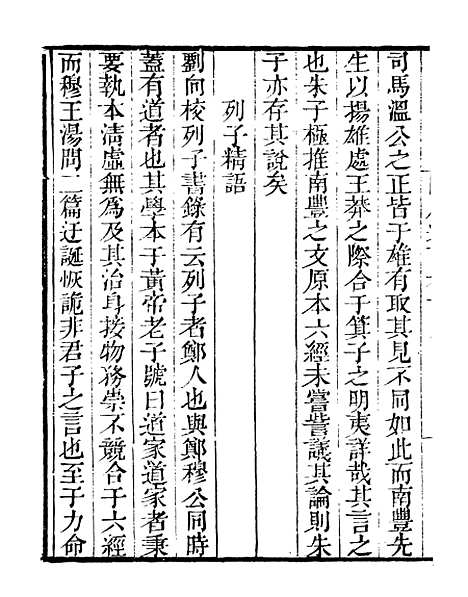 司馬溫公之正皆于雄有取其見不同如此而南豐先
生以揚雄處王莽之際合于箕子之明夷詳哉其言之
也朱子極推南豐之文原本六經未嘗訾議其論則朱
子亦存其說矣
列子精語
劉向校列子書錄有云列子者鄭人也與鄭穆公同時
蓋有道者也其學本于黃帝老子號曰道家道家者秉
要執本清虛無爲及其治身接物務崇不競合于六經
而穆王湯問二篇迂誕恢詭非君子之言也至于力命